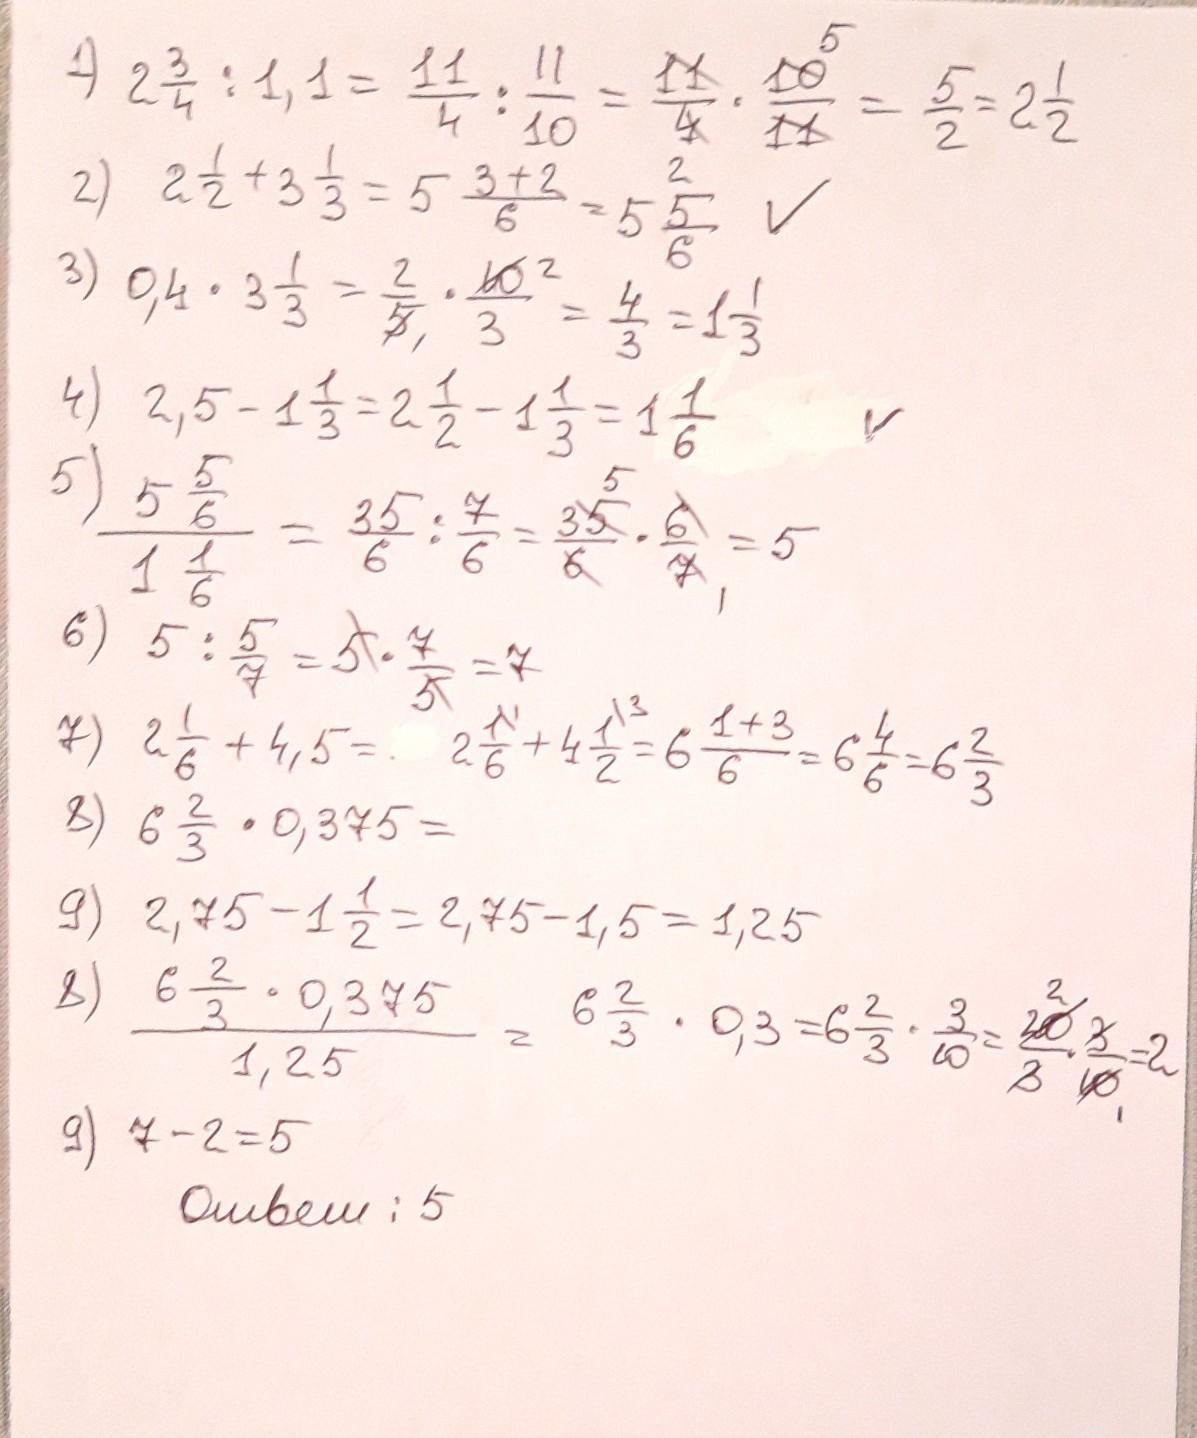 1) 2 3/4 : 1,1 = 11/4 : 11/10 = 11/4 · 10/11 = 5/2 = 2 1/2
2) 2 1/2 + 3 1/3 = 5 (3+2)/6 = 5 5/6 ✓
3) 0,4 · 3 1/3 = 2/5 · 10/3 = 4/3 = 1 1/3
4) 2,5 - 1 1/3 = 2 1/2 - 1 1/3 = 1 1/6 ✓
5) (5 5/6)/(1 1/6) = 35/6 : 7/6 = 35/6 · 6/7 = 5
6) 5 : 5/7 = 5 · 7/5 = 7
7) 2 1/6 + 4,5 = 2 1/6 + 4 1/2 = 6 (1+3)/6 = 6 4/6 = 6 2/3
8) 6 2/3 · 0,375 =
9) 2,75 - 1 1/2 = 2,75 - 1,5 = 1,25
8) (6 2/3 · 0,375)/1,25 = 6 2/3 · 0,3 = 6 2/3 · 3/10 = 20/3 · 3/10 = 2
9) 7 - 2 = 5
Ответ : 5